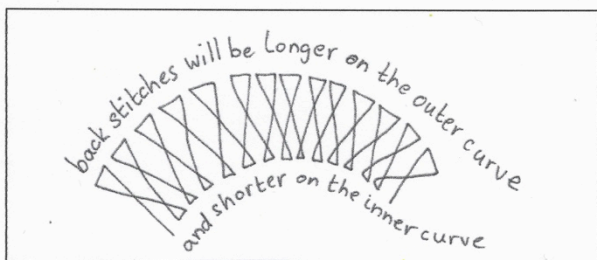 back stitches will be Longer on the outer curve
and shorter on the inner curve